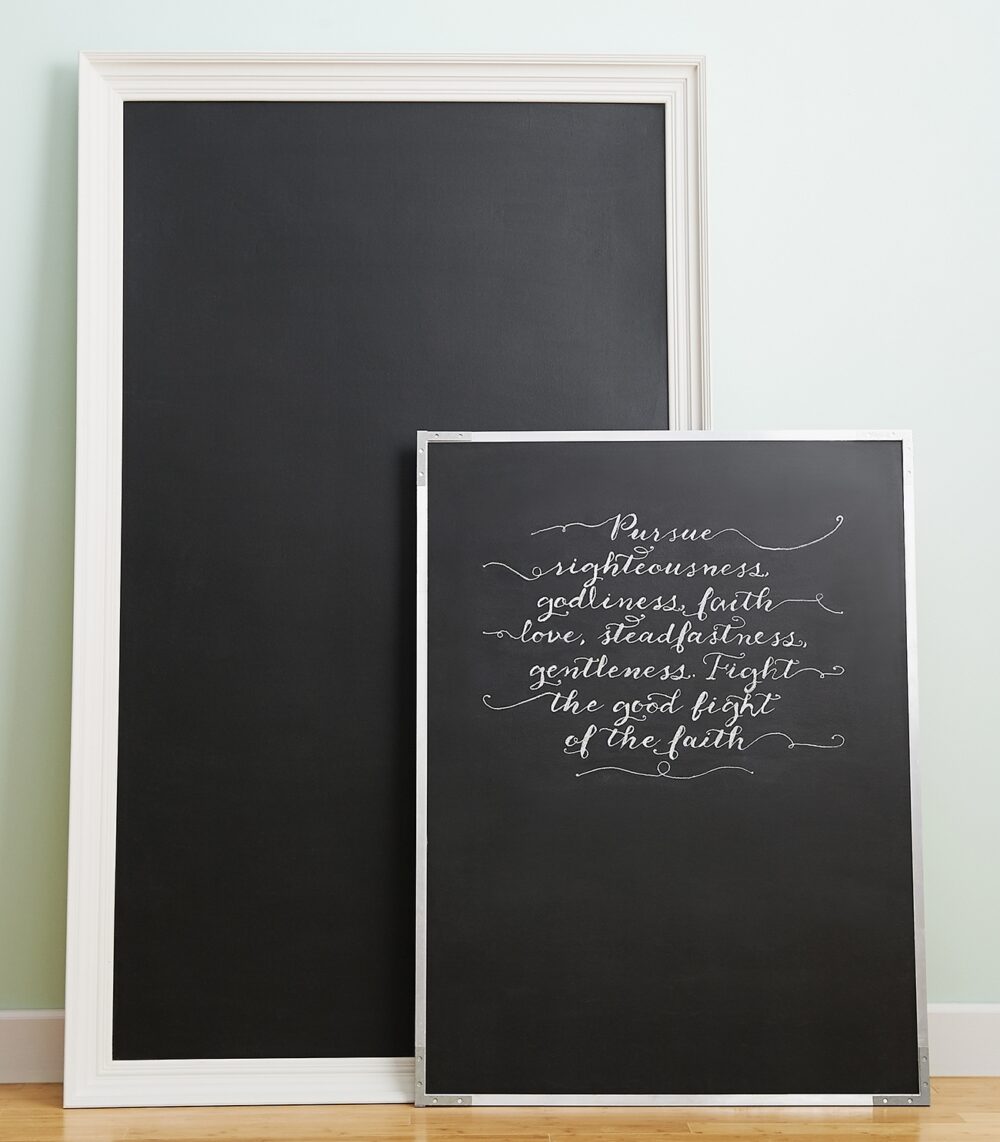 Pursue
righteousness,
godliness, faith
love, steadfastness,
gentleness. Fight
the good fight
of the faith